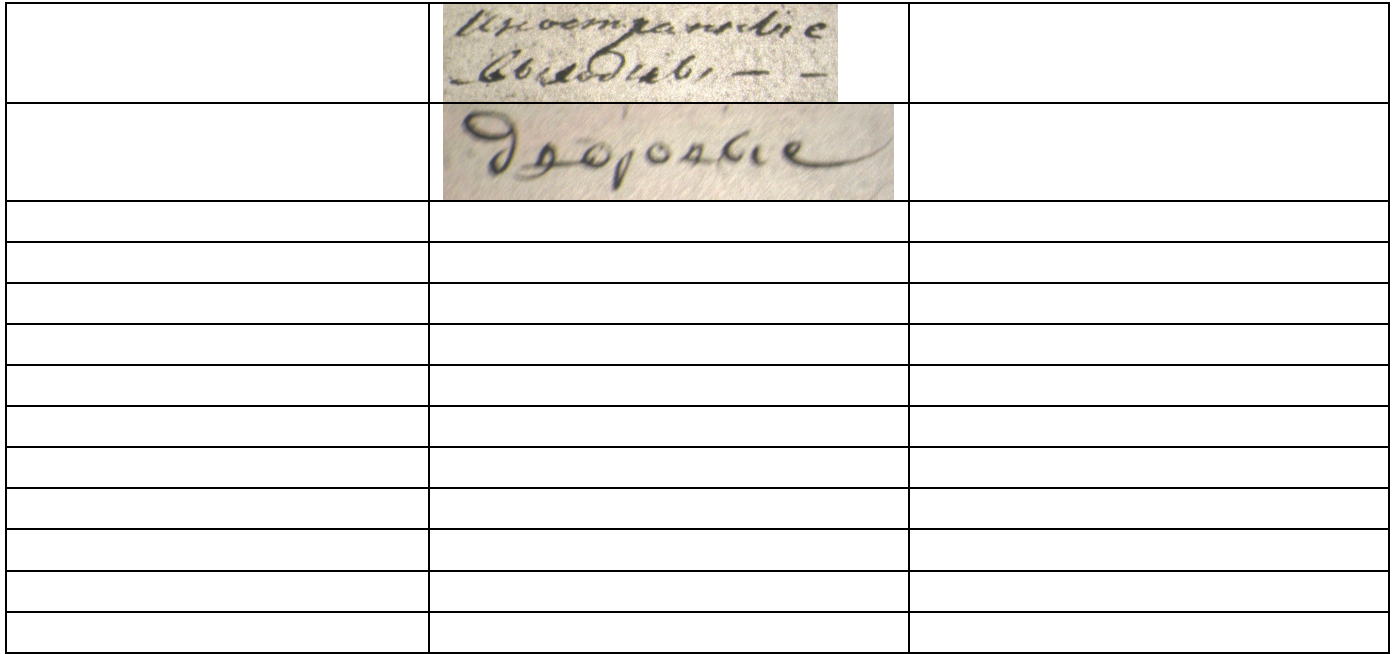 Иностранные
выходцы — —
Дворовые